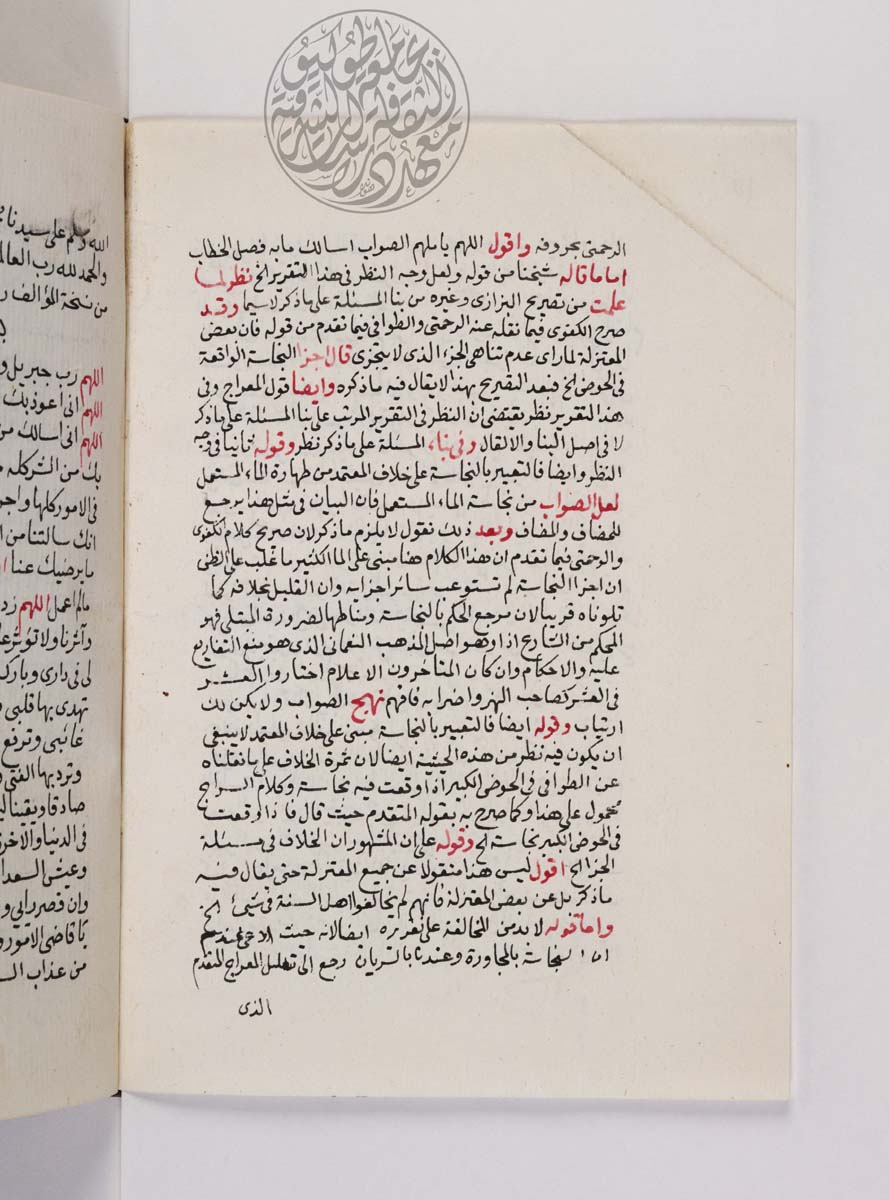 الرحمتى بحروفه واقول اللهم يا ملهم الصواب اسالك مابه فصل الخطاب
اما ما قاله شيخنا من قوله ولعل وجه النظر فى هذا التقرير الخ نظر لما
علمت من تصريح البزازى وغيره من بنا المسئلة على ما ذكر لاسيما وقد
صرح الكفوى فيما نقله عنه الرحمتى والطوافى فيما تقدم من قوله فان بعض
المعتزلة لما راى عدم تناهى الجزء الذى لا يتجزى قال اجزا النجاسة الواقعة
فى الحوض الخ فبعد التصريح بهذا لا يقال فيه ما ذكره وايضا قول المعراج وفى
هذا التقرير نظر يقتضى ان النظر فى التقرير المرتب على بنا المسئلة على ما ذكر
لا فى اصل البنا والا لقال وفى بناء المسئلة على ما ذكر نظر وقوله ثانيا فى وجه
النظر وايضا فالتعبير بالنجاسة على خلاف المعتمد من طهارة الماء المستعمل
لعل الصواب من نجاسة الماء المستعمل فان البيان فى مثل هذا يرجع
للمضاف والمضاف وبعد ذلك نقول لا يلزم ما ذكر لان صريح كلام الكفوى
والرحمتى فيما تقدم ان هذا الكلام هنا مبنى على الما الكثير ما غلب على الظن
ان اجزا النجاسة لم تستوعب سائر اجزايه وان القليل بخلافه كما
تلوناه قريبا لان مرجع الحكم بالنجاسة ومناطها لضرورة المبتلى فهو
المحكم من الشارع اذ اوهو اصل المذهب النعمانى الذى هو منبع التفاريع
عليه والاحكام وان كان المتاخرون الاعلام اختاروا العشر
فى العشر كصاحب النهر واضرابه فافهم نهج الصواب ولا يكن لك
ارتياب وقوله ايضا فالتعبير بالنجاسة مبنى على خلاف المعتمد لا ينبغى
ان يكون فيه نظر من هذه الحيثية ايضا لان ثمرة الخلاف على ما نقلناه
عن الطوافى فى الحوض الكبير اذا وقعت فيه نجاسة وكلام السراج
محمول على هذا وكما صرح به بقوله المتقدم حيث قال فاذا وقعت
فى الحوض الكبير نجاسة الخ وقوله على ان المشهور ان الخلاف فى مسئلة
الجزا الخ اقول ليس هذا منقولا عن جميع المعتزلة حتى يقال فيه
ما ذكر بل عن بعض المعتزلة فانهم لم يخالفوا اهل السنة فى شئ الخ
واما قوله لا بد من المخالفة على تقريره ايضا لانه حيث
النجاسة بالمجاورة وعندنا بالسريان رجع الى تعليل المعراج المتقدم
الذى
الله وسلم على سيدنا
والحمد لله رب العالمـ
من نسخة المؤلف
اللهم رب جبريل و
اللهم انى اعوذ بك
اللهم انى اسالك من
بك من الشر كله
فى الامور كلها واجر
انك سالتنا من ا
ما يرضيك عنا
مالم اعمل اللهم زد
وآثرنا ولا تؤثر علـ
لى فى دارى وبارك
تهدى بها قلبى
غائبى وترفع
وترد بها الفتى
صادقا ويقينا ليـ
فى الدنيا والاخرة
وعيش السعدا
وان قصر رايى و
يا قاضى الامور و
من عذاب السـ
جامعة طوكيو
معهد دراسات الثقافة الشرقية